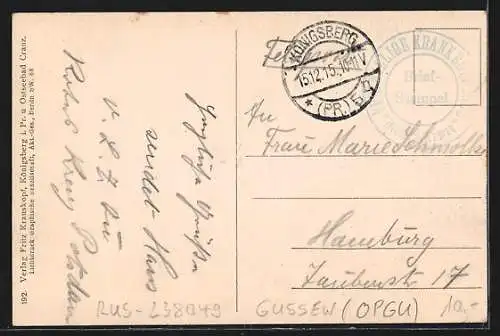 192. Verlag Fritz Krauskopf, Königsberg i. Pr. u Ostseebad Cranz.
Lichtdruck Graphische Gesellschaft, Akt-Ges., Berlin SW. 68
Rotes Kreuz Potsdam
Herzliche Grüße
sendet Hans
KÖNIGSBERG
15.12.15. 10-11 V
* (PR.) 5 q
Brief-
Stempel
An
Frau Marie
Hamburg
Taubenstr 17
RUS-238049
GUSSEW (OPGU)
10,-